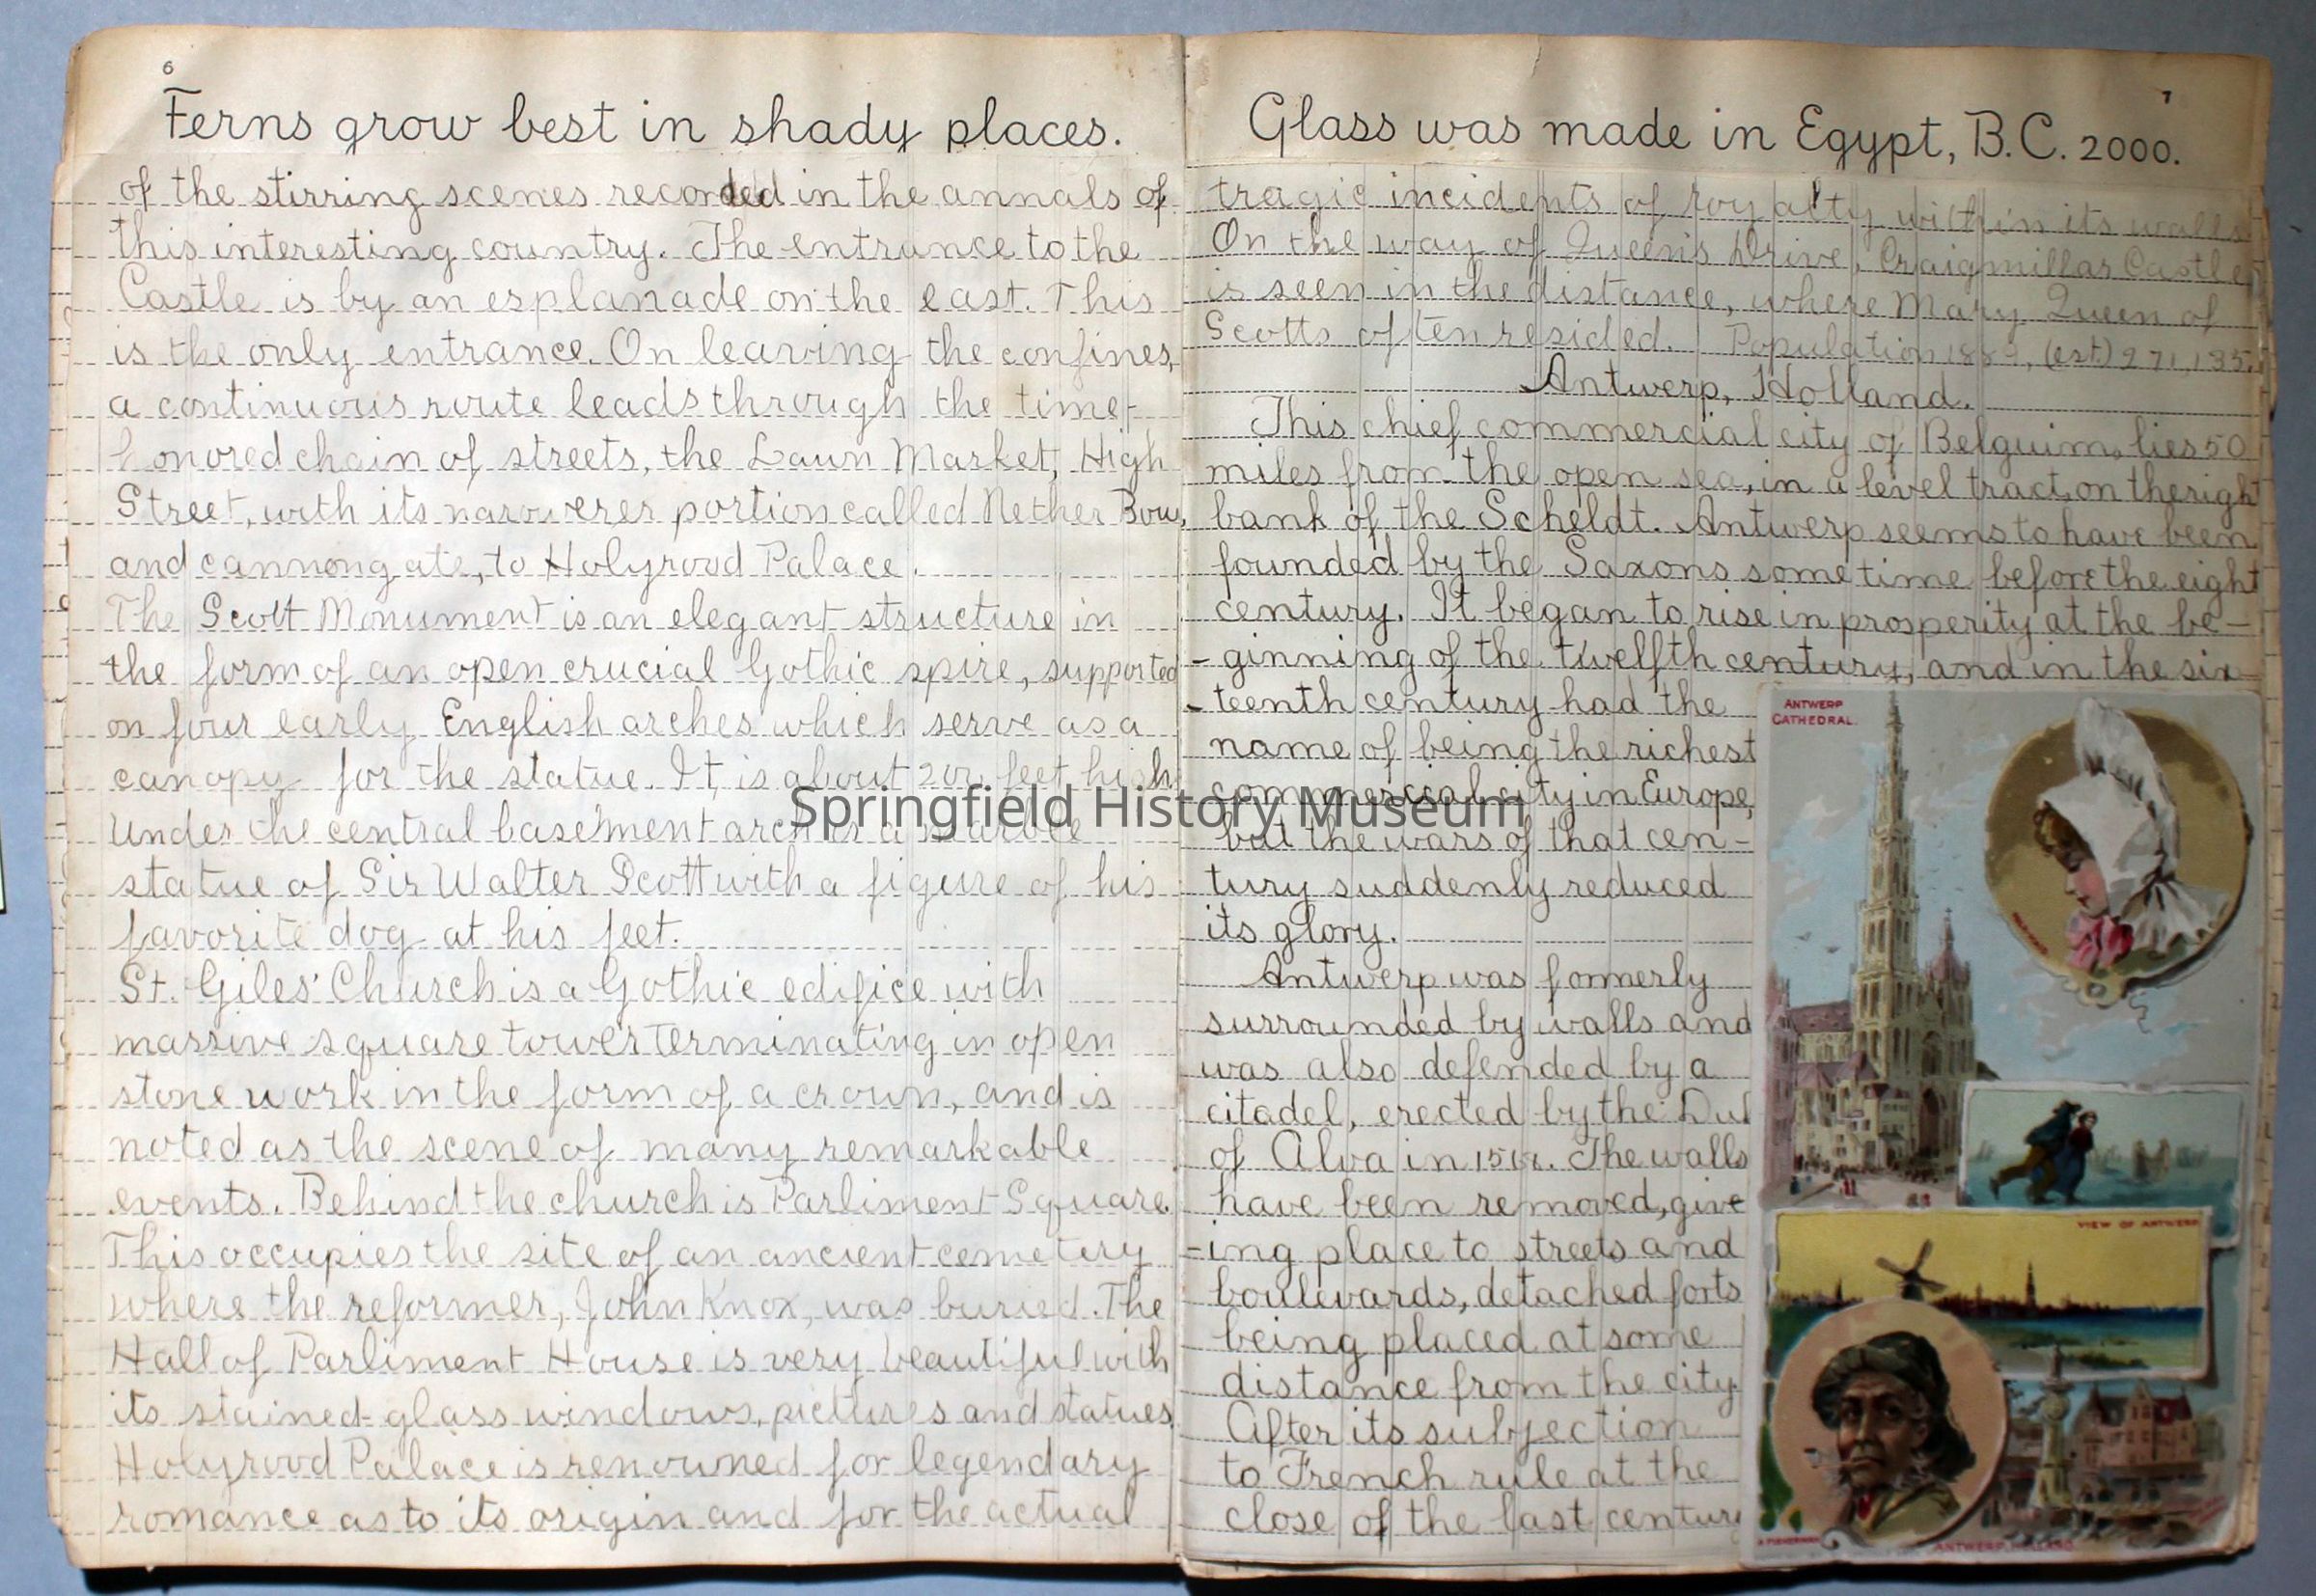 6
Ferns grow best in shady places.
of the stirring scenes recorded in the annals of
this interesting country. The entrance to the
Castle is by an esplanade on the east. This
is the only entrance. On leaving the confines,
a continuous route leads through the time-
honored chain of streets, the Lawn Market, High
Street, with its narrowerer portion called Nether Bow,
and cannongate, to Holyrood Palace.
The Scott Monument is an elegant structure in
the form of an open crucial Gothic spire, supported
on four early English arches which serve as a
canopy for the statue. It is about 200 feet high.
Under the central basement arch is a marble
statue of Sir Walter Scott with a figure of his
favorite dog at his feet.
St. Giles' Church is a Gothic edifice with
massive square tower terminating in open
stone work in the form of a crown, and is
noted as the scene of many remarkable
events. Behind the church is Parliment Square.
This occupies the site of an ancient cemetery
where the reformer, John Knox, was buried. The
Hall of Parliment House is very beautiful with
its stained-glass windows, pictures and statues.
Holyrood Palace is renouned for legendary
romance as to its origin and for the actual
7
Glass was made in Egypt, B.C. 2000.
tragic incidents of royalty within its walls
On the way of Queen's Drive, Craigmillar Castle
is seen in the distance, where Mary Queen of
Scotts often resided. Population 1889, (est) 271,135.
Antwerp, Holland.
This chief commercial city of Belguim, lies 50
miles from the open sea, in a level tract, on the right
bank of the Scheldt. Antwerp seems to have been
founded by the Saxons sometime before the eight
century. It began to rise in prosperity at the be-
-ginning of the twelfth century, and in the six-
-teenth century had the
name of being the richest
commercial city in Europe,
but the wars of that cen-
tury suddenly reduced
its glory.
Antwerp was formerly
surrounded by walls and
was also defended by a
citadel, erected by the Duk
of Alva in
The walls
have been removed, giv-
-ing place to streets and
boulevards, detached forts
being placed at some
distance from the city.
After its subjection
to French rule at the
close of the last century
ANTWERP
CATHEDRAL.
VIEW OF ANTWERP
A FISHERMAN
ANTWERP, HOLLAND.
Springfield History Museum